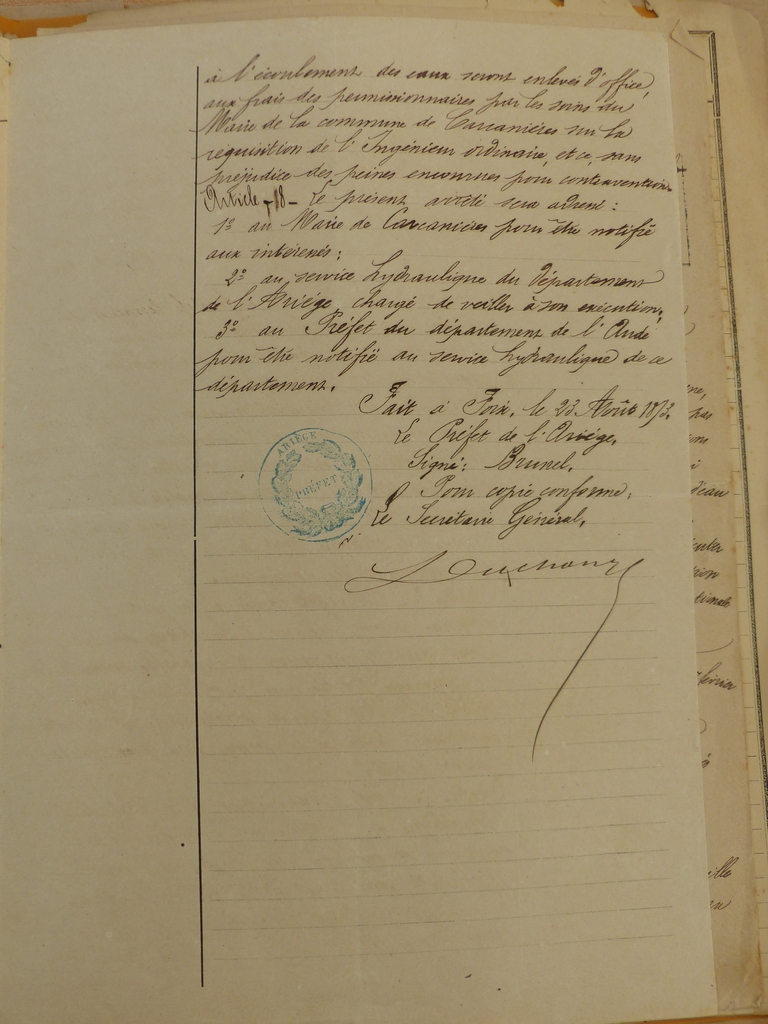 à l'écoulement des eaux seront enlevés d'office,
aux frais des permissionnaires par les soins du
Maire de la commune de Carcanières sur la
réquisition de l'Ingénieur ordinaire, et ce, sans
préjudice des peines encourues pour contravention.
Article 18 - Le présent arrêté sera adressé :
1° au Maire de Carcanières pour être notifié
aux intéressés ;
2° au service hydraulique du Département
de l'Ariége, chargé de veiller à son exécution,
3° au Préfet du département de l'Aude
pour être notifié au service hydraulique de ce
département.
Fait à Foix, le 23 Août 1873.
Le Préfet de l'Ariége,
Signé : Brunel,
Pour copie conforme,
Le Secrétaire Général,
ARIÈGE
PRÉFET